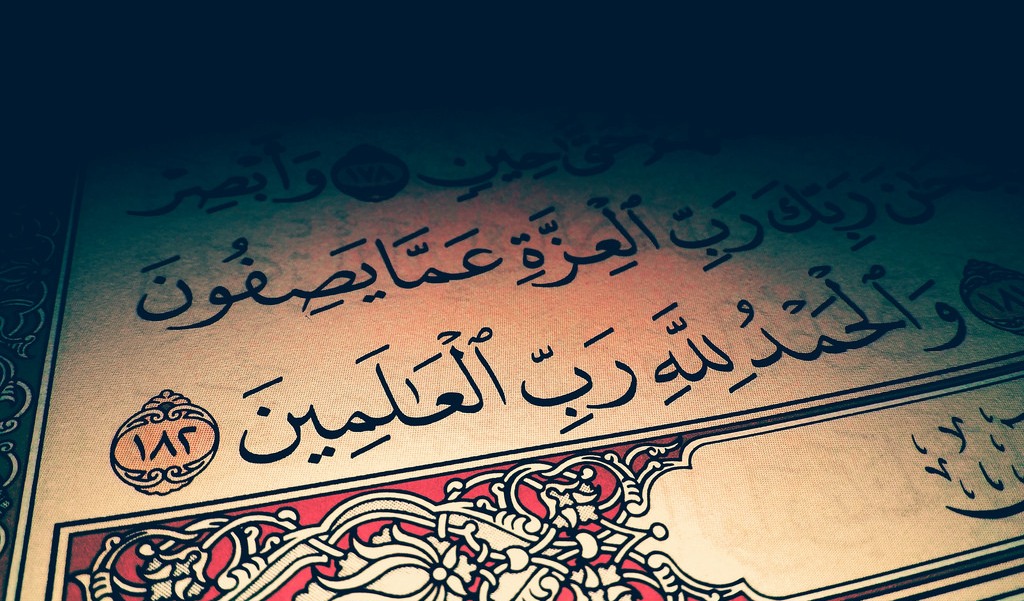 حَتَّىٰ حِينٍ ١٧٨ وَأَبْصِرْ
رَبِّكَ رَبِّ ٱلْعِزَّةِ عَمَّا يَصِفُونَ
وَٱلْحَمْدُ لِلَّهِ رَبِّ ٱلْعَـٰلَمِينَ ١٨٢